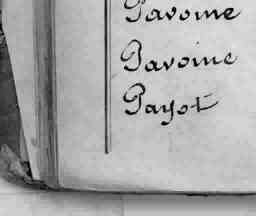 Pavoine
Pavoine
Payot